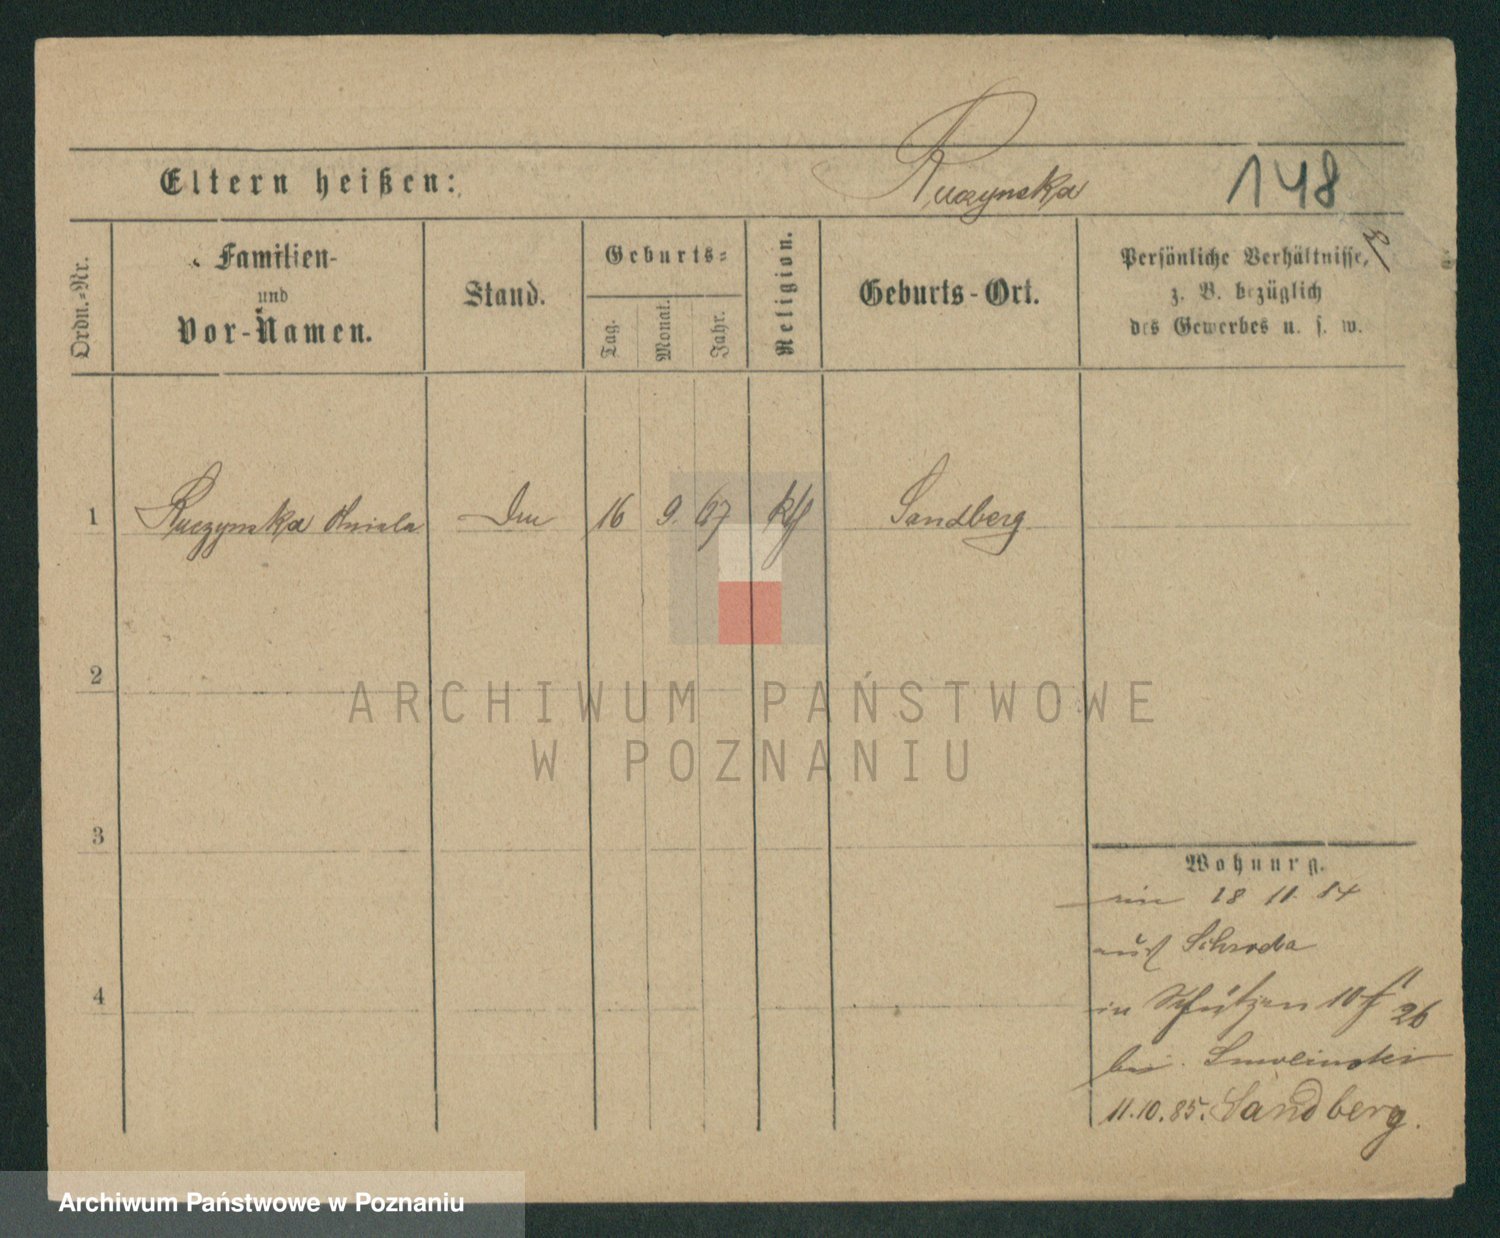 Ruczynska
Eltern heißen:
148
Ordn.-Nr.
Familien-
und
Vor-Namen.
Stand.
Geburts-
Tag.
Monat.
Jahr.
Religion.
Geburts-Ort.
Persönliche Verhältnisse,
z. B. bezüglich
des Gewerbes u. s. w.
1 Ruczynska Aniela 16 9. 67 kth Sandberg
2
3
4
Wohnung.
18 11. 84
aus Schroda
in Schützen 10
26
bei Smolinski
11.10.85. Sandberg.
ARCHIWUM PAŃSTWOWE
W POZNANIU
Archiwum Państwowe w Poznaniu